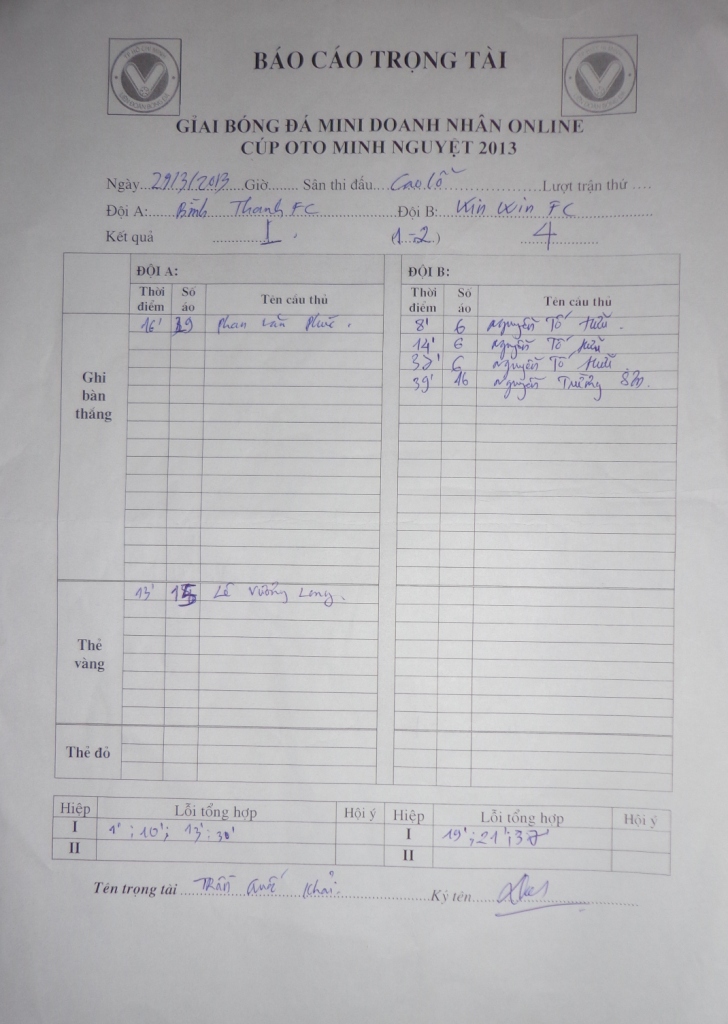 BÁO CÁO TRỌNG TÀI
GIẢI BÓNG ĐÁ MINI DOANH NHÂN ONLINE
CÚP OTO MINH NGUYỆT 2013
Ngày...29/3/2013...Giờ....... Sân thi đấu...Cao Lỗ...Lượt trận thứ ....
Đội A:...Bình Thạnh FC...Đội B:...Win Win FC...
Kết quả ...1... (1-2) ...4...
ĐỘI A: ĐỘI B:
Thời điểm Số áo Tên cầu thủ Thời điểm Số áo Tên cầu thủ
Ghi bàn thắng
16' Phan Văn Phúc. 8' 6 Nguyễn Tố Hữu.
14' 6 Nguyễn Tố Hữu
6 Nguyễn Tố Hữu.
39' 16 Nguyễn Trường Sơn.
Thẻ vàng
13' Lê Vương Long.
Thẻ đỏ
Hiệp Lỗi tổng hợp Hội ý Hiệp Lỗi tổng hợp Hội ý
I 1'; 10'; 13'; 30' I 19'; 21'; 37
II II
Tên trọng tài...Trần Quốc Khải...Ký tên